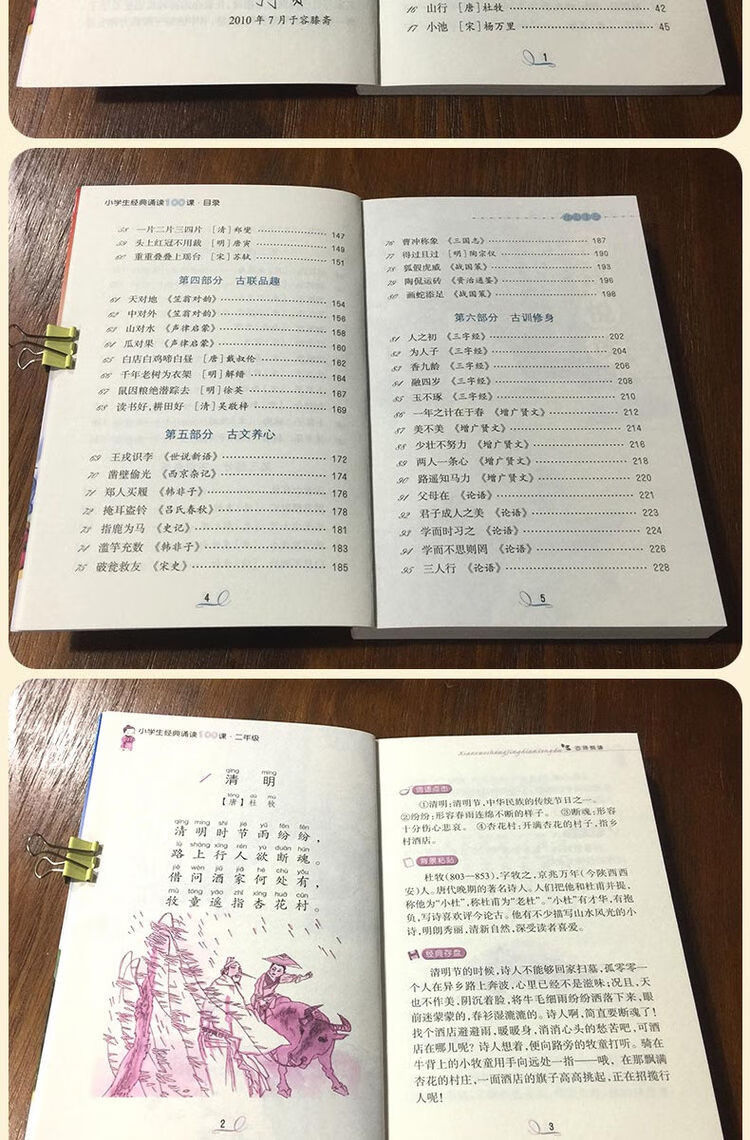 2010年7月于容膝斋
16 山行 [唐]杜牧 42
17 小池 [宋]杨万里 45
1
小学生经典诵读100课·目录
58 一片二片三四片 [清]郑燮 147
59 头上红冠不用裁 [明]唐寅 149
60 重重叠叠上瑶台 [宋]苏轼 151
第四部分 古联品趣
61 天对地 《笠翁对韵》 154
62 中对外 《笠翁对韵》 156
63 山对水 《声律启蒙》 158
64 瓜对果 《声律启蒙》 160
65 白店白鸡啼白昼 [唐]戴叔伦 162
66 千年老树为衣架 [明]解缙 164
67 鼠因粮绝潜踪去 [明]徐英 167
68 读书好,耕田好 [清]吴敬梓 169
第五部分 古文养心
69 王戎识李 《世说新语》 172
70 凿壁偷光 《西京杂记》 174
71 郑人买履 《韩非子》 176
72 掩耳盗铃 《吕氏春秋》 178
73 指鹿为马 《史记》 181
74 滥竽充数 《韩非子》 183
75 破瓮救友 《宋史》 185
4
76 曹冲称象 《三国志》 187
77 得过且过 [明]陶宗仪 190
78 狐假虎威 《战国策》 193
79 陶侃运砖 《资治通鉴》 196
80 画蛇添足 《战国策》 198
第六部分 古训修身
81 人之初 《三字经》 202
82 为人子 《三字经》 204
83 香九龄 《三字经》 206
84 融四岁 《三字经》 208
85 玉不琢 《三字经》 210
86 一年之计在于春 《增广贤文》 212
87 美不美 《增广贤文》 214
88 少壮不努力 《增广贤文》 216
89 两人一条心 《增广贤文》 218
90 路遥知马力 《增广贤文》 220
91 父母在 《论语》 221
92 君子成人之美 《论语》 223
93 学而时习之 《论语》 224
94 学而不思则罔 《论语》 226
95 三人行 《论语》 228
5
小学生经典诵读100课·二年级
qīng míng
1 清明
táng dù mù
【唐】杜牧
qīng míng shí jié yǔ fēn fēn
清明时节雨纷纷,
lù shàng xíng rén yù duàn hún
路上行人欲断魂。
jiè wèn jiǔ jiā hé chù yǒu
借问酒家何处有,
mù tóng yáo zhǐ xìng huā cūn
牧童遥指杏花村。
2
古诗诵读
词语点击
①清明:清明节,中华民族的传统节日之一。
②纷纷:形容春雨连绵不断的样子。 ③断魂:形容
十分伤心悲哀。 ④杏花村:开满杏花的村子,指乡
村酒店。
背景粘贴
杜牧(803—853),字牧之,京兆万年(今陕西西
安)人。唐代晚期的著名诗人。人们把他和杜甫并提,
称他为“小杜”,称杜甫为“老杜”。“小杜”有才华,有抱
负,写诗喜欢评今论古。他有不少描写山水风光的小
诗,明朗秀丽,清新自然,深受读者喜爱。
经典存盘
清明节的时候,诗人不能够回家扫墓,孤零零一
个人在异乡路上奔波,心里已经不是滋味;况且,天
也不作美,阴沉着脸,将牛毛细雨纷纷洒落下来,眼
前迷蒙蒙的,春衫湿漉漉的。诗人啊,简直要断魂了!
找个酒店避避雨,暖暖身,消消心头的愁苦吧,可酒
店在哪儿呢?诗人想着,便向路旁的牧童打听。骑在
牛背上的小牧童用手向远处一指——哦,在那飘满
杏花的村庄,一面酒店的旗子高高挑起,正在招揽行
人呢!
3